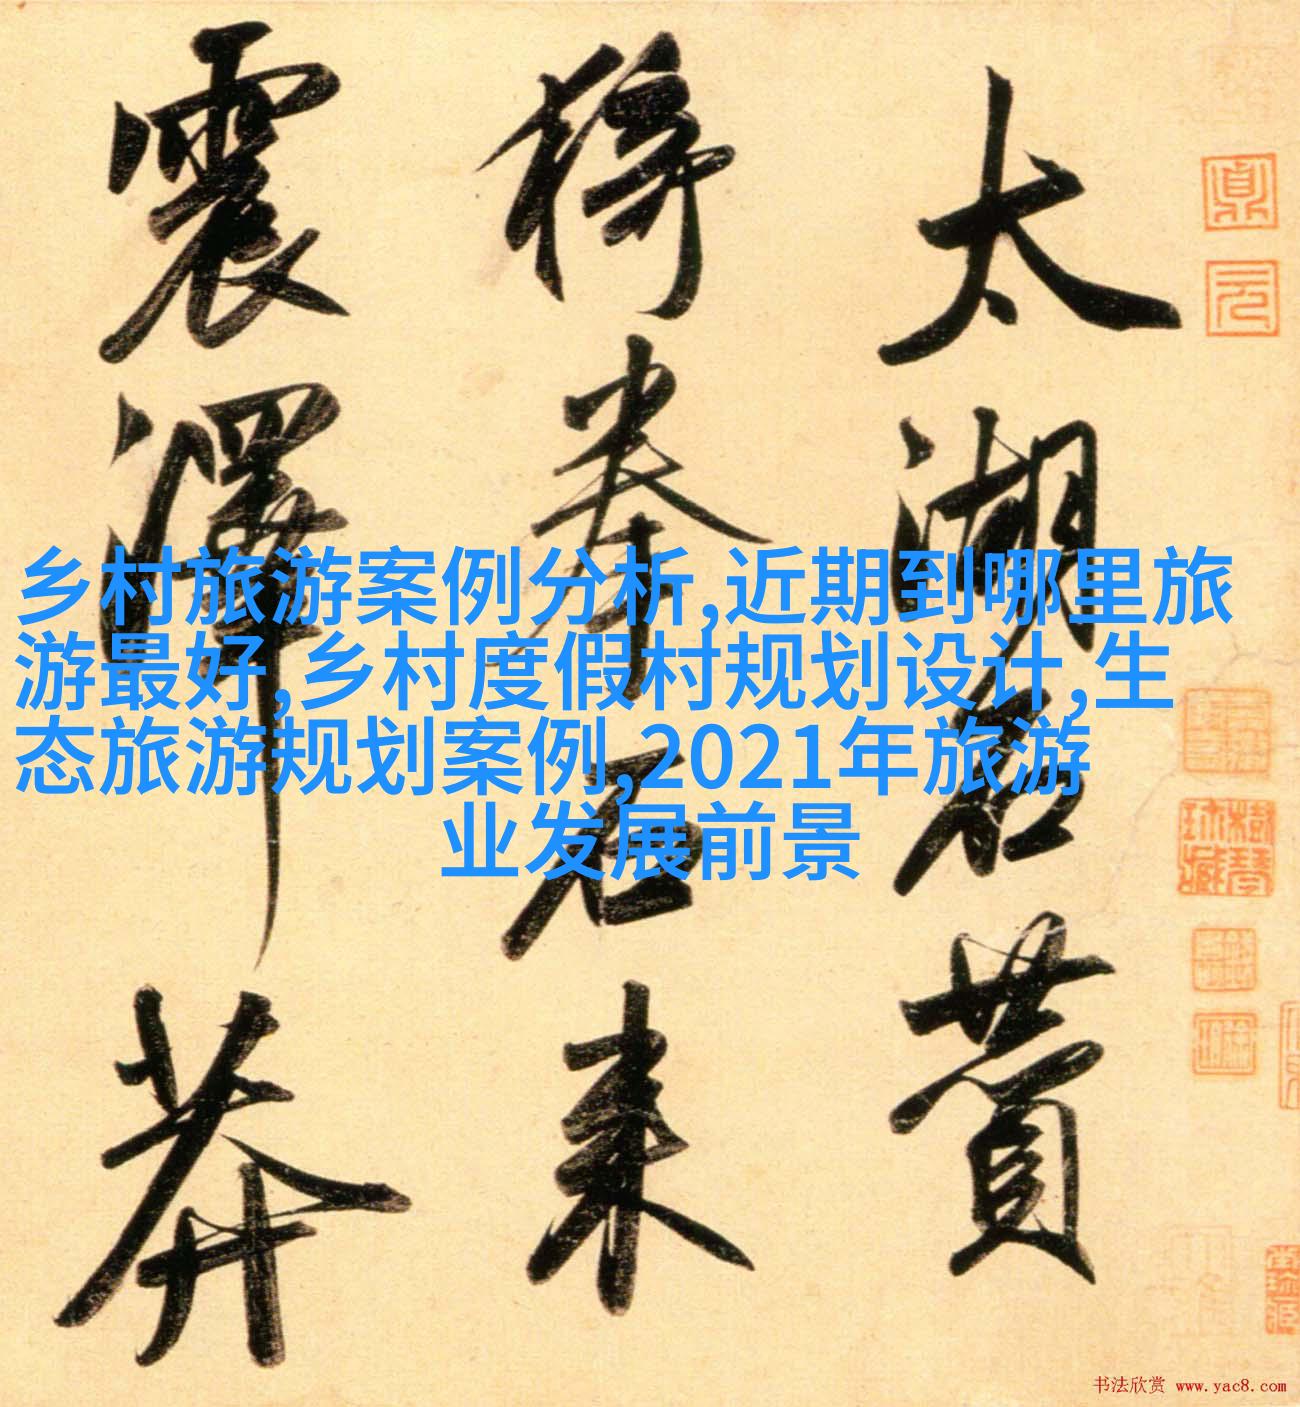 太湖石贊
猗拳石来
震澤莽
貞
元
乡村旅游案例分析,近期到哪里旅
游最好,乡村度假村规划设计,生
态旅游规划案例,2021年旅游
业发展前景
书法欣赏 www.yac8.com